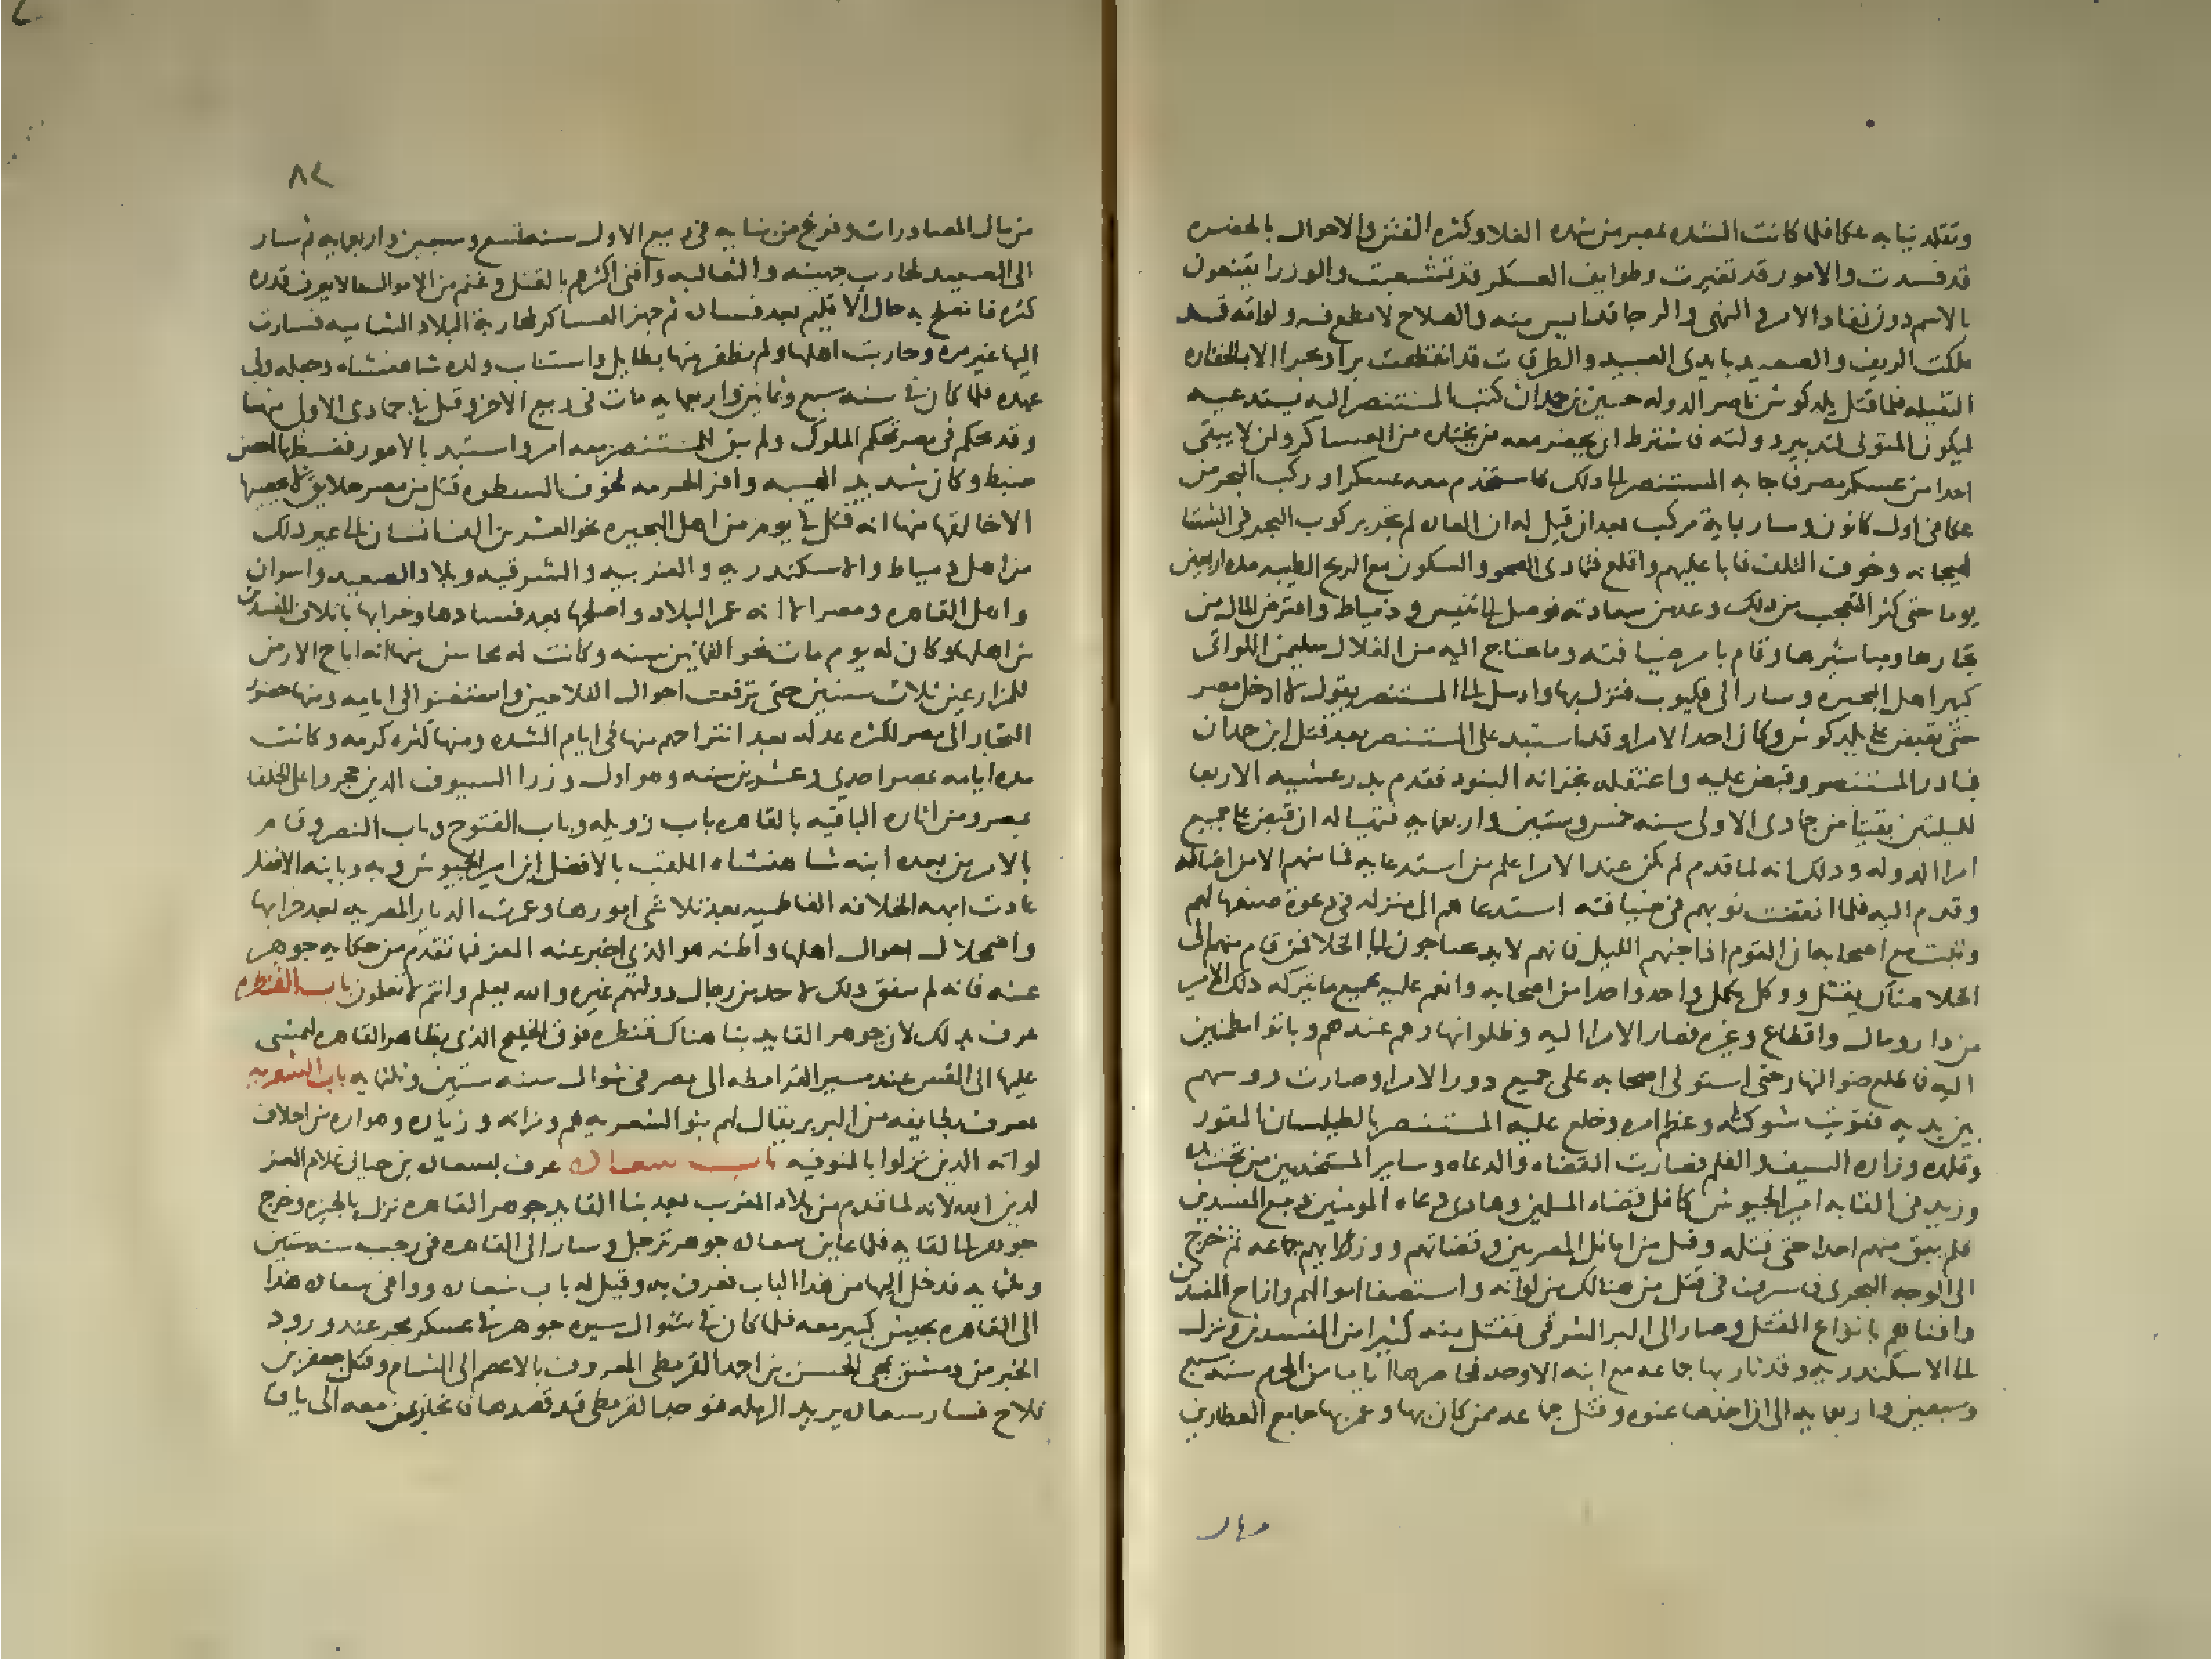 وتقلد نيابه عكا فلما كانت الشده بمصر من شده الغلا وكثره الفتن والاحوال بالحضره
قد فسدت والامور قد تغيرت وطوايف العسكر قد تشعبت والوزرا يقنعون
بالاسم دون نفاد الامر والنهي والرجا قد ايس منه والصلاح لا مطمع فيه ولواته قد
ملكت الريف والصعيد بايدي العبيد والطرقات قد انقطعت برا وبحرا الا بالخفاره
الثقيله فلما قتل بلدكوش ناصر الدوله حسين بن حمدان كتب المستنصر اليه يستدعيه
ليكون المتولي لتدبير دولته فاشترط ان يحضر معه من يختاره من العساكر ولن لا يبقي
احدا من عسكر مصر فاجابه المستنصر الى ذلك فاستخدم معه عسكرا وركب البحر من
عكا في اول كانون وسار بماية مركب بعد ان قيل له ان العاده لم تجر بركوب البحر في الشتا
لهيجانه وخوف التلف فابا عليهم واقلع فتمادى الصحو والسكون مع الريح الطيبه مده اربعين
يوما حتى كثر التعجب من ذلك وعد من سعادته فوصل الى تنيس ودمياط واقترض المال من
تجارها ومياسيرها وقام بامر ضيافته وما يحتاج اليه من الغلال سليمن اللواتي
كبير اهل البحيره وسار الى قليوب فنزل بها وارسل الى المستنصر يقول لا ادخل مصر
حتى تقبض على بلدكوش وكان احد الامرا وقد استبد على المستنصر بعد قتل ابن حمدان
فبادر المستنصر وقبض عليه واعتقله بخزانه البنود فقدم بدر عشيه الاربعا
لليلتين بقيتا من جمادى الاولى سنه خمس وستين واربعمايه فتهيا له ان قبض على جميع
امرا الدوله وذلك انه لما قدم لم يكن عند الامرا علم من استدعايه فما منهم الا من اضافه
وقدم اليه فلما انقضت نوبهم في ضيافته استدعاهم الى منزله في دعوة صنعها لهم
وبيت مع اصحابه ان القوم اذا جنهم الليل فانهم لا بد يحتاجون الى الخلا فمن قام منهم الى
الخلا هناك يقتل ووكل بكل واحد واحدا من اصحابه وانعم عليه بجميع ما يتركه ذلك الامير
من دار ومال واقطاع وغيره فصار الامرا اليه وظلوا نهارهم عنده وباتوا مطمنين
اليه فما طلع ضو النهار حتى استولى اصحابه على جميع دور الامرا وصارت روسهم
بين يديه فقويت شوكته وعظم امره وخلع عليه المستنصر بالطيلسان المقور
وقلده وزاره السيف والقلم فصارت القضاه والدعاه وساير المستخدمين من تحت يده
وزيد في القابه امير الجيوش كافل قضاه المسلمين وهادي دعاه المومنين وتتبع المفسدين
فلم يبق منهم احدا حتى قتله وقتل من اماثل المصريين وقضاتهم ووزرايهم جماعه ثم خرج
الى الوجه البحري فاسرف في قتل من هنالك من لواته واستصفا اموالهم وازاح المفسدين
وافناهم بانواع القتل وصار الى البر الشرقي فقتل منه كثيرا من المفسدين ونزل
الى الاسكندريه وقد ثار بها جماعه مع ابنه الاوحد فحاصرها اياما من المحرم سنه سبع
وسبعين واربعمايه الى ان اخذها عنوه وقتل جماعه ممن كان بها وعمر بها جامع العطارين
٨٢
من مال المصادرات وفرغ من بنايه في ربيع الاول سنه تسع وسبعين واربعمايه ثم سار
الى الصعيد فحارب جهينه والثعالبه وافنى اكثرهم بالقتل وغنم من الاموال ما لا يعرف قدره
كثره فانصلح به حال الاقليم بعد فساده ثم جهز العساكر لمحاربة البلاد الشاميه فسارت
اليها غير مره وحاربت اهلها ولم يظفر منها بطايل واستناب ولده شاهنشاه وجعله ولي
عهده فلما كان في سنه سبع وثمانين واربعمايه مات في ربيع الاخر وقيل في جمادى الاولى منها
وقد تحكم في مصر تحكم الملوك ولم يبق للمستنصر معه امر واستبد بالامور فضبطها احسن
ضبط وكان شديد الهيبه وافر الحرمه مخوف السطوه قتل من مصر خلايق لا يحصيها
الا خالقها منها انه قتل في يوم من اهل البحيره نحو العشرين الف انسان الى غير ذلك
من اهل دمياط والاسكندريه والغربيه والشرقيه وبلاد الصعيد واسوان
واهل القاهره ومصر الا انه عمر البلاد واصلحها بعد فسادها وخرابها باتلاف المفسدين
من اهلها وكان له يوم مات نحو الثمانين سنه وكانت له محاسن منها انه اباح الارض
للمزارعين ثلاث سنين حتى ترفهت احوال الفلاحين واستغنوا في ايامه ومنها حضور
التجار الى مصر لكثره عدله بعد انتزاحهم منها في ايام الشده ومنها كثره كرمه وكانت
مده ايامه بمصر احدى وعشرين سنه وهو اول وزرا السيوف الذين حجروا على الخلفا
بمصر ومن اثاره الباقيه بالقاهره باب زويله وباب الفتوح وباب النصر وقام
بالامر من بعده ابنه شاهنشاه الملقب بالافضل ابن امير الجيوش وبه وبابنه الافضل
عادت ابهه الخلافه الفاطميه بعد تلاشي امورها وعمرت الديار المصريه بعد خرابها
واضمحلال احوال اهلها واظنه هو الذي اخبر عنه المعز فيما تقدم من حكايه جوهر
عنه فانه لم يتفق ذلك لاحد من رجال دولتهم غيره والله يعلم وانتم لا تعلمون باب القنطره
عرف بذلك لان جوهر القايد بنا هناك قنطره فوق الخليج الذي بظاهر القاهره ليمشي
عليها الى المقس عند مسير القرامطه الى مصر في شوال سنه ستين وثلثمايه باب الشعريه
يعرف بطايفه من البربر يقال لهم بنو الشعريه هم ومزاته وزياره وهواره من احلاف
لواته الذين نزلوا بالمنوفيه باب سعاده عرف بسعاده بن حيان غلام المعز
لدين الله لانه لما قدم من بلاد المغرب بعد بنا القايد جوهر القاهره نزل بالجيزه وخرج
جوهر الى لقايه فلما عاين سعاده جوهر ترجل وسار الى القاهره في رجب سنه ستين
وثلثمايه فدخل اليها من هذا الباب فعرف به وقيل له باب سعاده ووافى سعاده هذا
الى القاهره بجيش كبير معه فلما كان في شوال سيره جوهر في عسكر مجر عند ورود
الخبر من دمشق بمجي الحسن بن احمد القرمطي المعروف بالاعصم الى الشام وقتل جعفر بن
فلاح فسار سعاده يريد الرمله فوجد القرمطي قد قصدها فانحاز بمن معه الى يافا